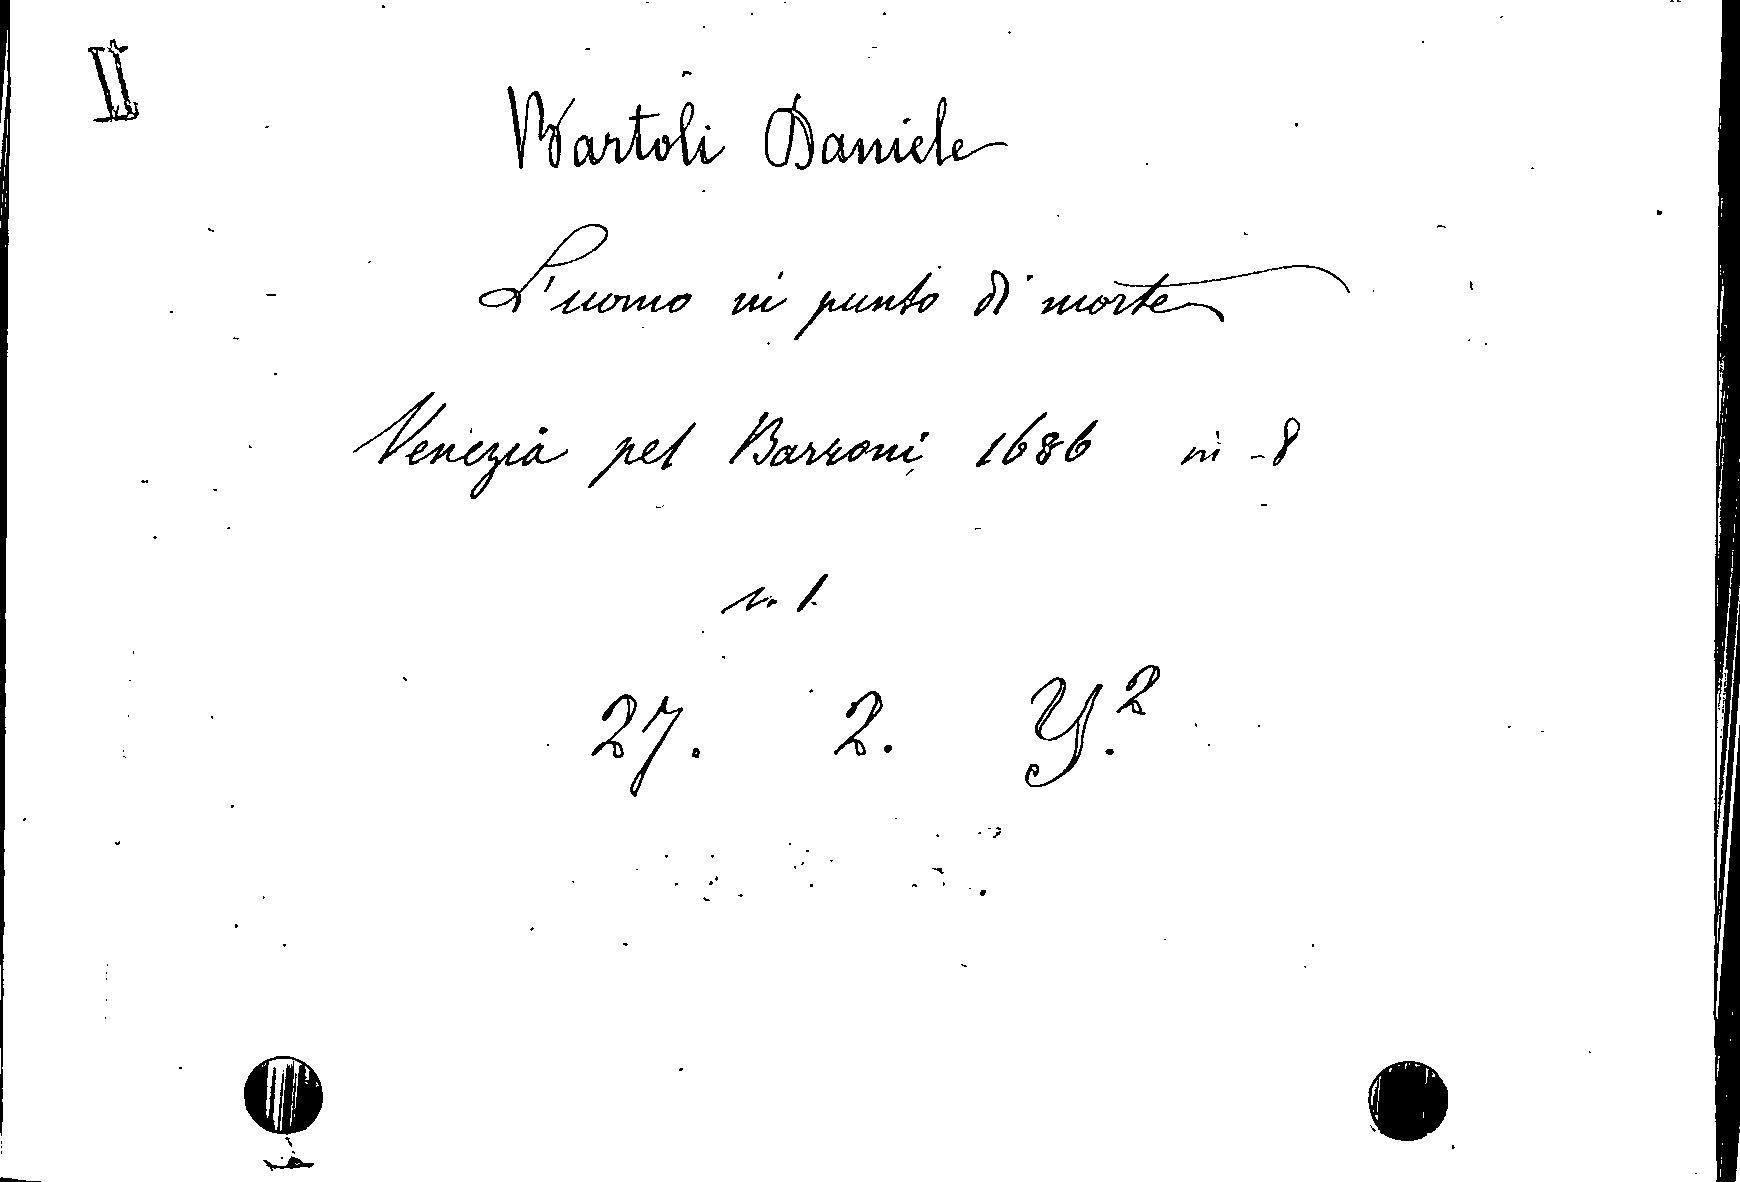 II
Bartoli Daniele
L'uomo in punto di morte
Venezia pel Barzoni, 1686 in-8
v. 1.
27. 2. Y.2